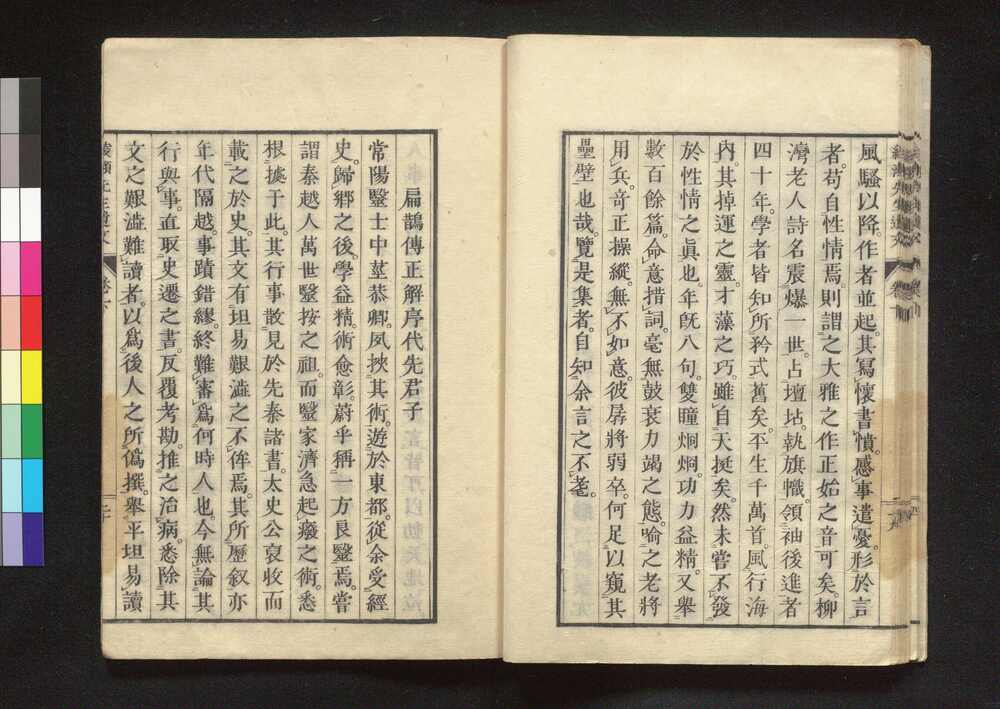 風騷以降。作者並起。其寫懷書憤。感事遣憂。形於言
者。苟自性情焉。則謂之大雅之作正始之音可矣。柳
灣老人詩名震爆一世。占壇坫。執旗幟。領袖後進者
四十年。學者皆知所矜式舊矣。平生千萬首。風行海
內。其掉運之靈。才藻之巧。雖自天挺矣。然未嘗不發
於性情之眞也。年旣八旬。雙瞳烱烱。功力益精。又舉
數百餘篇。命意措詞。毫無鼓衰力竭之態。喻之老將
用兵。竒正操縱。無不如意。彼孱將弱卒。何足以窺其
壘壁也哉。覽是集者。自知余言之不耄。
扁鵲傳正解序代先君子
常陽毉士中莖恭卿。夙挾其術。遊於東都。從余受經
史。歸鄉之後。學益精。術愈彰。蔚乎稱一方良毉焉。嘗
謂秦越人萬世毉按之祖。而毉家濟急起癈之術。悉
根據于此。其行事散見於先秦諸書。太史公裒收而
載之於史。其文有坦易艱澁之不侔焉。其所歷叙亦
年代隔越。事蹟錯繆。終難審爲何時人也。今無論其
行與事。直取史遷之書。反覆考勘。推之治病。悉除其
文之艱澁難讀者。以爲後人之所僞撰。舉平坦易讀